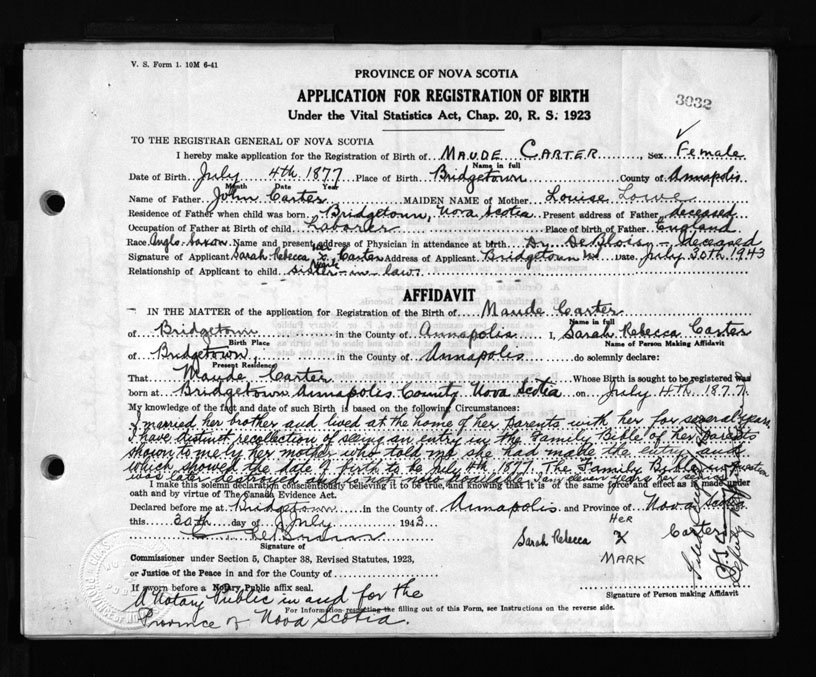 V. S. Form 1. 10M 6-41
PROVINCE OF NOVA SCOTIA
APPLICATION FOR REGISTRATION OF BIRTH
3032
Under the Vital Statistics Act, Chap. 20, R. S. 1923
TO THE REGISTRAR GENERAL OF NOVA SCOTIA
I hereby make application for the Registration of Birth of MAUDE CARTER, Sex Female
Name in full
Date of Birth July 4th 1877 Place of Birth Bridgetown County of Annapolis
Month Date Year
Name of Father John Carter MAIDEN NAME of Mother Louise Lowe
Residence of Father when child was born Bridgetown, Nova Scotia Present address of Father deceased
Occupation of Father at Birth of child Laborer Place of birth of Father England
Race Anglo-Saxon Name and present address of Physician in attendance at birth Dr. DeBlois - deceased
Signature of Applicant Sarah Rebecca X Carter Address of Applicant Bridgetown NS Date July 30th 1943
Relationship of Applicant to child sister-in-law
AFFIDAVIT
IN THE MATTER of the application for Registration of the Birth of Maude Carter
Name in full
of Bridgetown in the County of Annapolis I, Sarah Rebecca Carter
Birth Place Name of Person Making Affidavit
of Bridgetown, in the County of Annapolis do solemnly declare:
Present Residence
That Maude Carter Whose Birth is sought to be registered was
born at Bridgetown Annapolis County Nova Scotia on July 4th 1877
My knowledge of the fact and date of such Birth is based on the following Circumstances:
I married her brother and lived at the home of her parents with her for several years
I have distinct recollection of seeing an entry in the Family Bible of her parents
shown to me by her mother who told me she had made the entry and
which showed the date of birth to be July 4th 1877. The Family Bible in question
was later destroyed and is not now available. I am eleven years her senior
I make this solemn declaration conscientiously believing it to be true, and knowing that it is of the same force and effect as if made under
oath and by virtue of The Canada Evidence Act.
Declared before me at Bridgetown in the County of Annapolis and Province of Nova Scotia
this 30th day of July 1943
HER
Sarah Rebecca X Carter
MARK
Signature of
Commissioner under Section 5, Chapter 38, Revised Statutes, 1923,
or Justice of the Peace in and for the County of
If sworn before a Notary Public affix seal.
Signature of Person making Affidavit
A Notary Public in and for the
Province of Nova Scotia.
For Information respecting the filling out of this Form, see Instructions on the reverse side.